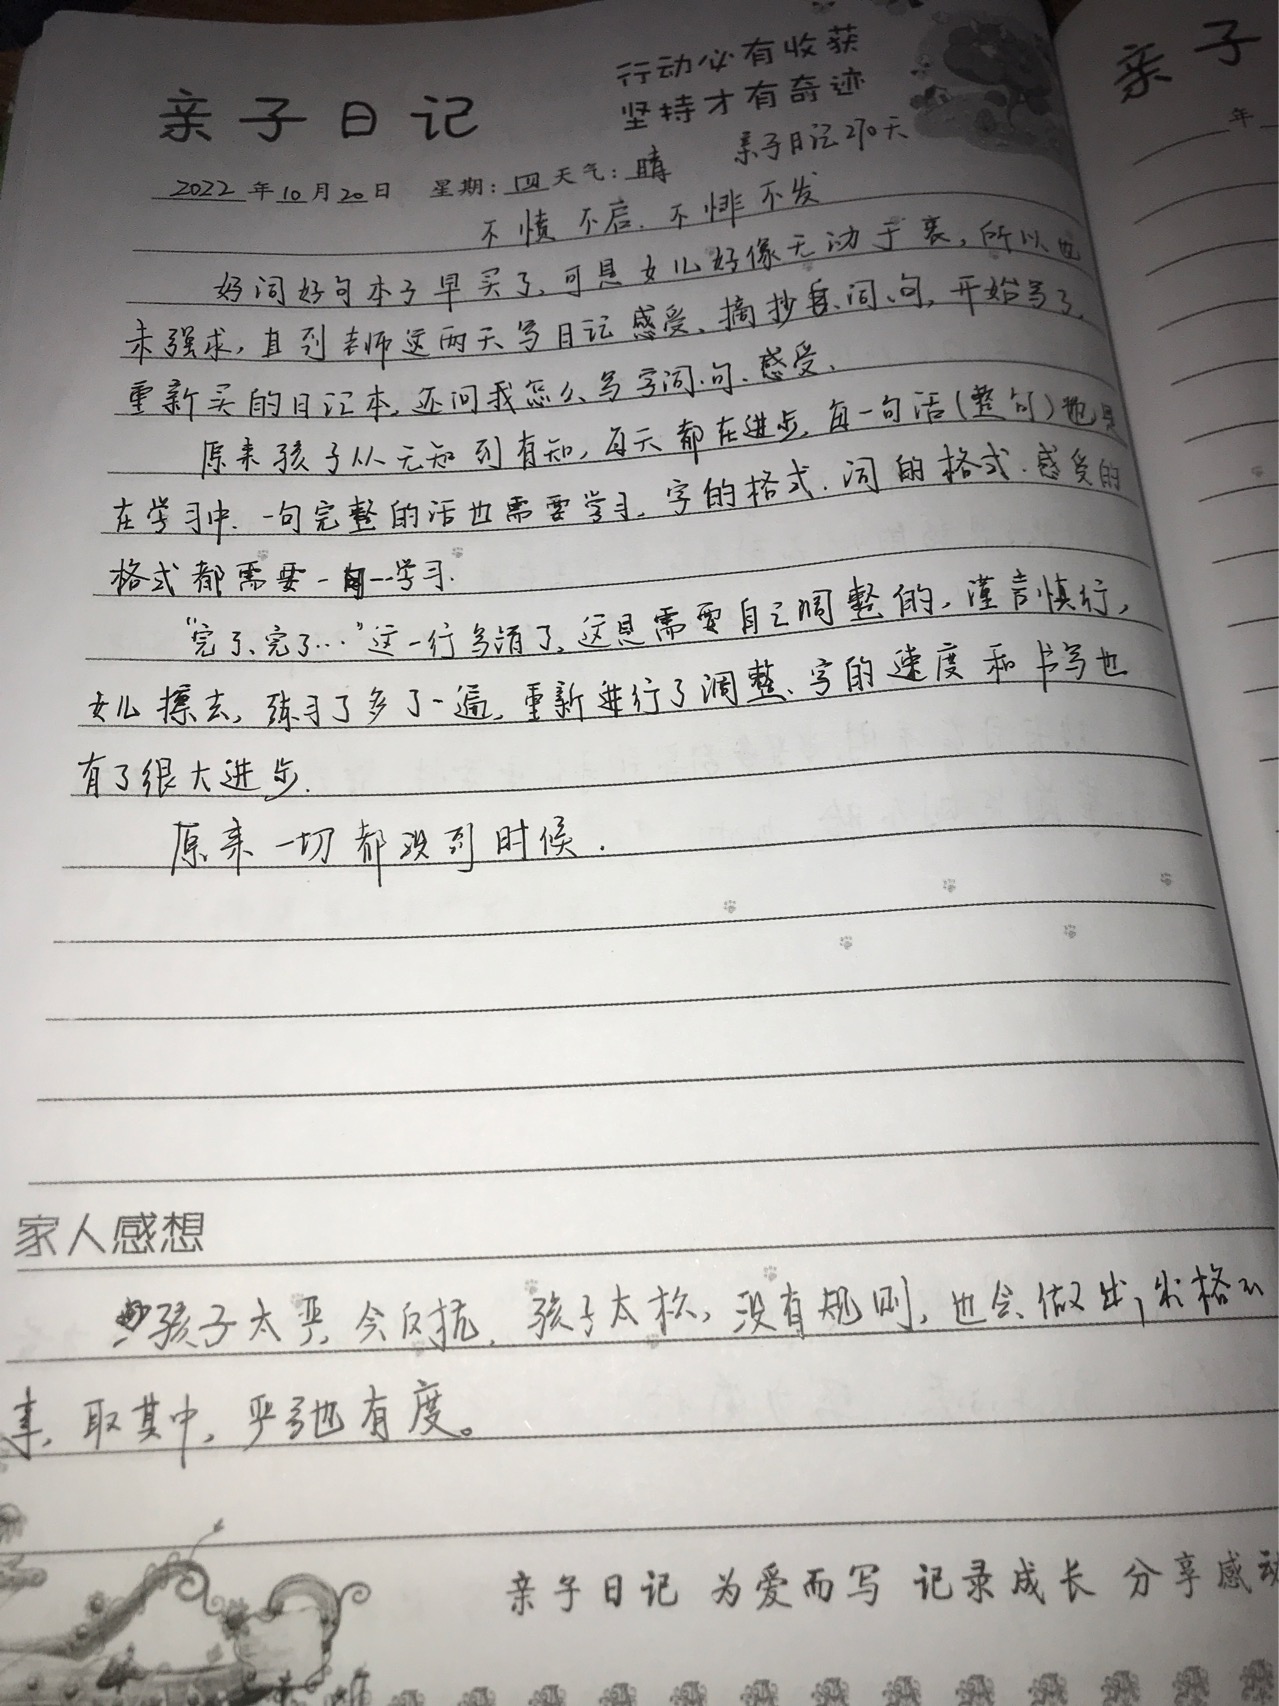 行动必有收获
坚持才有奇迹
亲子日记
亲子
亲子日记270天
2022年10月20日 星期:四 天气:晴
年
不愤不启.不悱不发
好词好句本子早买了,可是女儿好像无动于衷,所以也
未强求,直到老师这两天写日记感受、摘抄 词、句,开始写了,
重新买的日记本,还问我怎么写字词.句.感受.
原来孩子从无知到有知,每天都在进步,每一句话(整句)也是
在学习中.一句完整的话也需要学习.字的格式.词的格式.感受的
格式都需要一一学习.
"完了、完了…"这一行写消了,这是需要自己调整的,谨言慎行,
女儿擦去,练习了多了一遍,重新进行了调整、字的速度和书写也
有了很大进步.
原来一切都没到时候.
家人感想
孩子太严,会反抗,孩子太松,没有规则,也会做出,出格的
事,取其中,严弛有度。
亲子日记 为爱而写 记录成长 分享感动